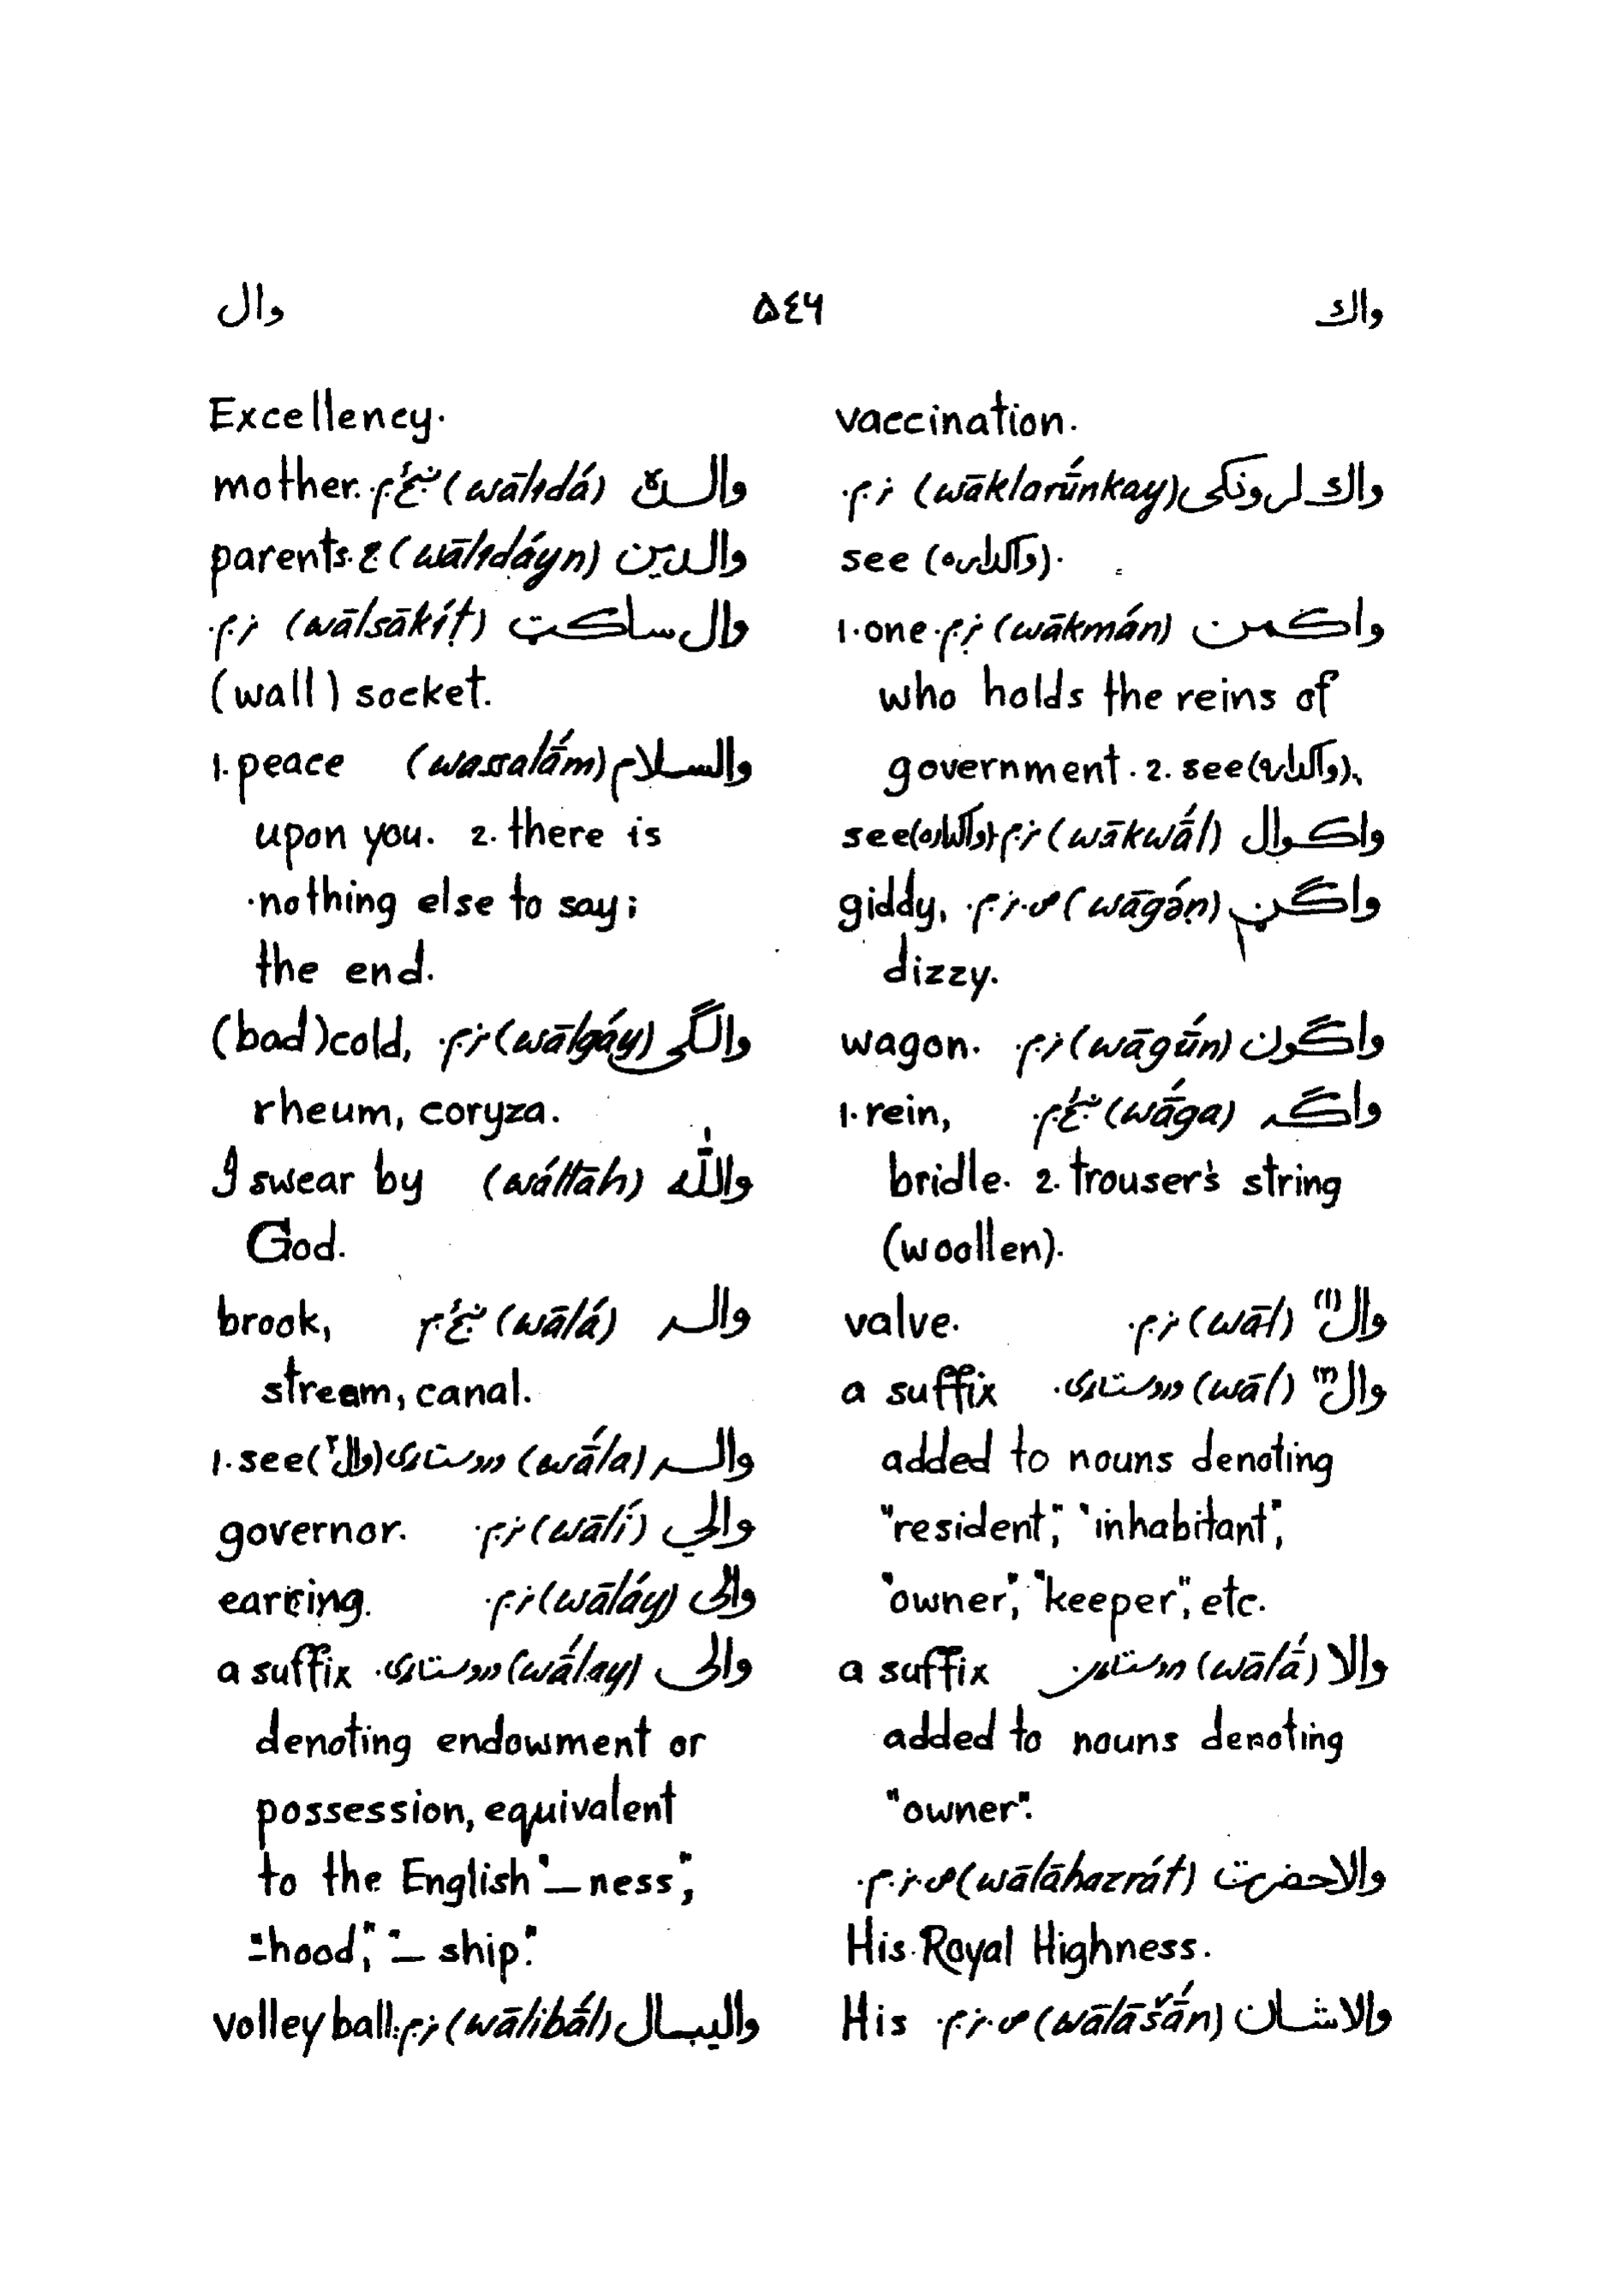 واک ۵٤۶ وال
vaccination.
واک لرونکی (wāklarū́nkay) نر.م.
see (واکدار).
واکمن (wākmán) نر.م. 1. one
who holds the reins of
government. 2. see (واکدار).
واکوال (wākwā́l) نر.م. see (واکدار)
واګڼ (wāgə́ṇ) ص.نر.م. giddy,
dizzy.
واګون (wāgū́n) نر.م. wagon.
واګه (wā́ga) ښځ.م. 1. rein,
bridle. 2. trouser's string
(woollen).
وال (۱) (wāl) نر.م. valve.
وال (۲) (wāl) روستاړی. a suffix
added to nouns denoting
"resident", "inhabitant",
"owner", "keeper", etc.
والا (wālā́) روستاړی a suffix
added to nouns denoting
"owner".
والاحضرت (wālāhazrát) ص.نر.م.
His Royal Highness.
والاشان (wālāšā́n) ص.نر.م. His
Excellency.
والده (wālidá) ښځ.م. mother.
والدین (wālidáyn) ج parents.
وال ساکټ (wālsākíṭ) نر.م.
(wall) socket.
والسلام (wassalā́m) 1. peace
upon you. 2. there is
nothing else to say;
the end.
والګی (wālgáy) نر.م. (bad) cold,
rheum, coryza.
والله (wállāh) I swear by
God.
واله (wālá) ښځ.م brook,
stream, canal.
واله (wā́la) روستاړی (وال۲) 1. see
والي (wālí) نر.م. governor.
والی (wāláy) نر.م. earring.
والی (wā́lay) روستاړی. a suffix
denoting endowment or
possession, equivalent
to the English "–ness",
"–hood", "– ship".
والیبال (wālibā́l) نر.م. volley ball.